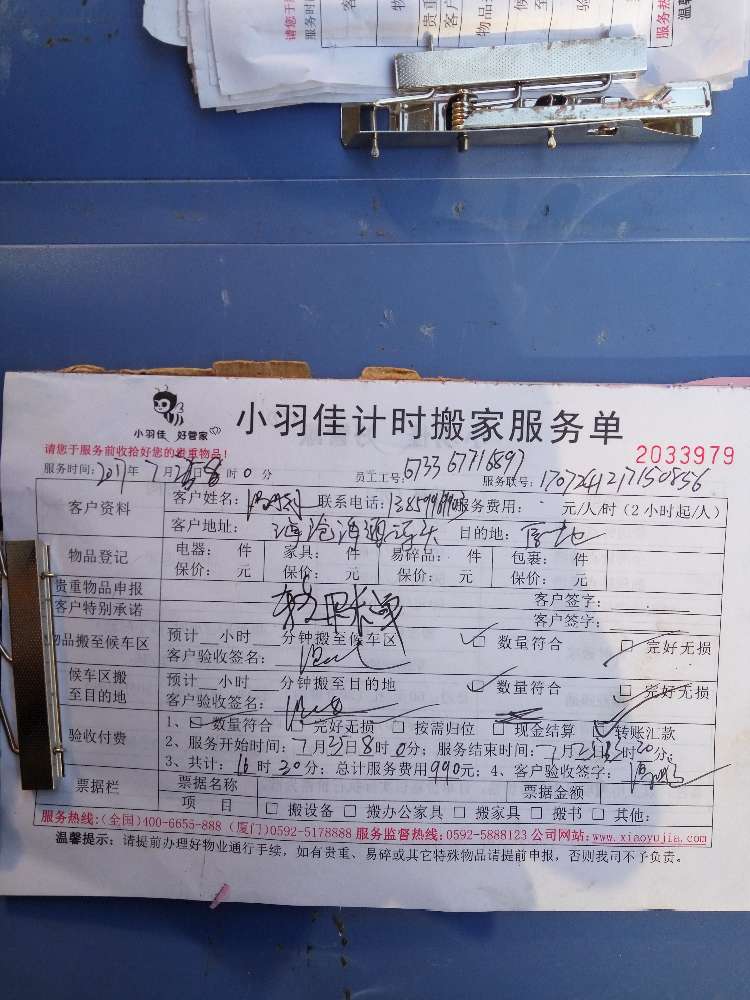 请您于
服务时间
客
物
贵重
客户
物品
候车
验
服务热
温馨
小羽佳 好管家
小羽佳计时搬家服务单
请您于服务前收拾好您的贵重物品!
2033979
服务时间: 2017年7月 日8时0分 员工工号: 6733 6771 6897 服务联号: 1707241217150856
客户资料
客户姓名: 联系电话: 服务费用: 元/人/时 (2小时起/人)
客户地址: 海沧 码头 目的地:
物品登记
电器: 件 家具: 件 易碎品: 件 包裹: 件
保价: 元 保价: 元 保价: 元 保价: 元
贵重物品申报 客户签字:
客户特别承诺 客户签字:
物品搬至候车区
预计 小时 分钟搬至候车区 数量符合 完好无损
客户验收签名:
候车区搬至目的地
预计 小时 分钟搬至目的地 数量符合 完好无损
客户验收签名:
验收付费
1、 数量符合 完好无损 按需归位 现金结算 转账汇款
2、服务开始时间: 7月 日8时0分; 服务结束时间: 7月 日 时 分;
3、共计: 16时30分; 总计服务费用990元; 4、客户验收签字:
票据栏
票据名称 票据金额
项 目 搬设备 搬办公家具 搬家具 搬书 其他:
服务热线:(全国)400-6655-888 (厦门)0592-5178888 服务监督热线:0592-5888123 公司网站:www.xiaoyujia.com
温馨提示: 请提前办理好物业通行手续, 如有贵重、易碎或其它特殊物品请提前申报, 否则我司不予负责。